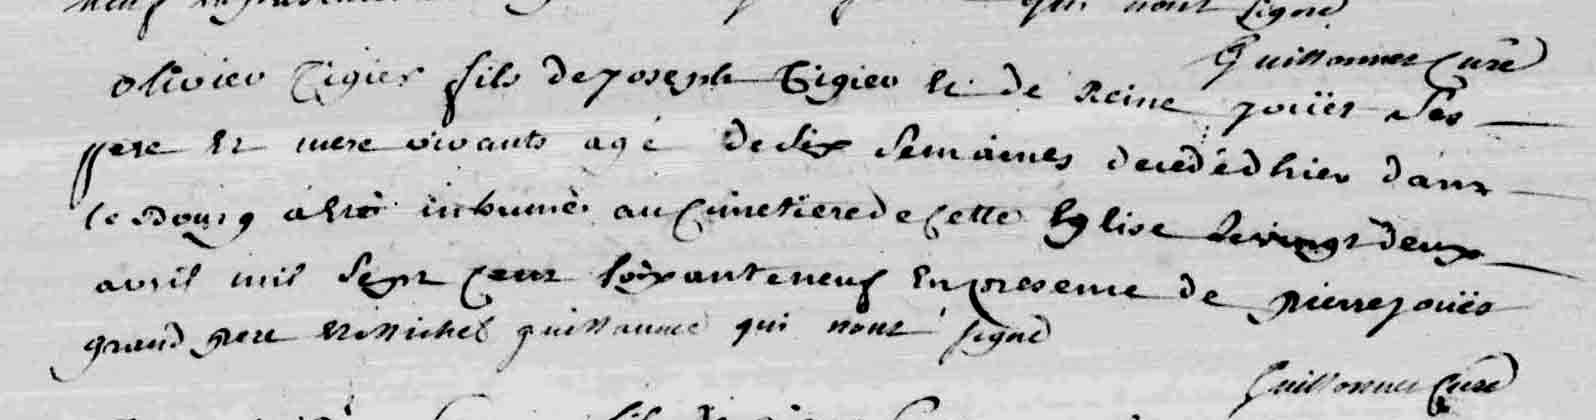 qui nont signé
Guillonnet Curé
Olivier Tigier fils de joseph Tigier et de Reine jouër Ses
pere et mere vivants agé de six semaines decedé d'hier dans
le Bourg a eté inhumé au Cimetiere de Cette Eglise le vingt deux
avril mil sept Cent soixante neuf En presence de pierre jouër
grand pere et Michel guillaume qui nont signé
Guillonnet Curé